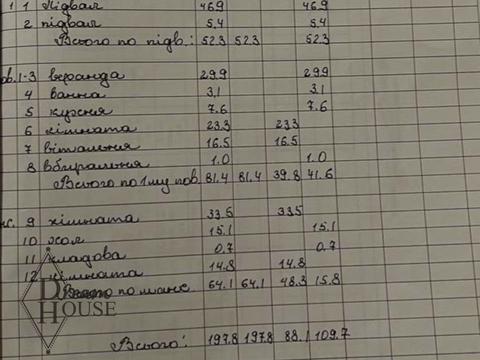 1 1 Підвал 46.9 46.9
2 підвал 5.4 5.4
Всього по підв.: 52.3 52.3 52.3
пов. 1-3 веранда 29.9 29.9
4 ванна 3,1 3.1
5 кухня 7.6 7.6
6 кімната 23.3 23.3
7 вітальня 16.5 16.5
8 вбиральня 1.0 1.0
Всього по 1 му пов 81.4 81.4 39.8 41.6
нс. 9 кімната 33.5 33.5
10 хол 15.1 15.1
11 кладова 0.7 0.7
12 кімната 14.8 14.8
Всього по манс 64.1 64.1 48.3 15.8
HOUSE
Всього: 197.8 197.8 88.1 109.7